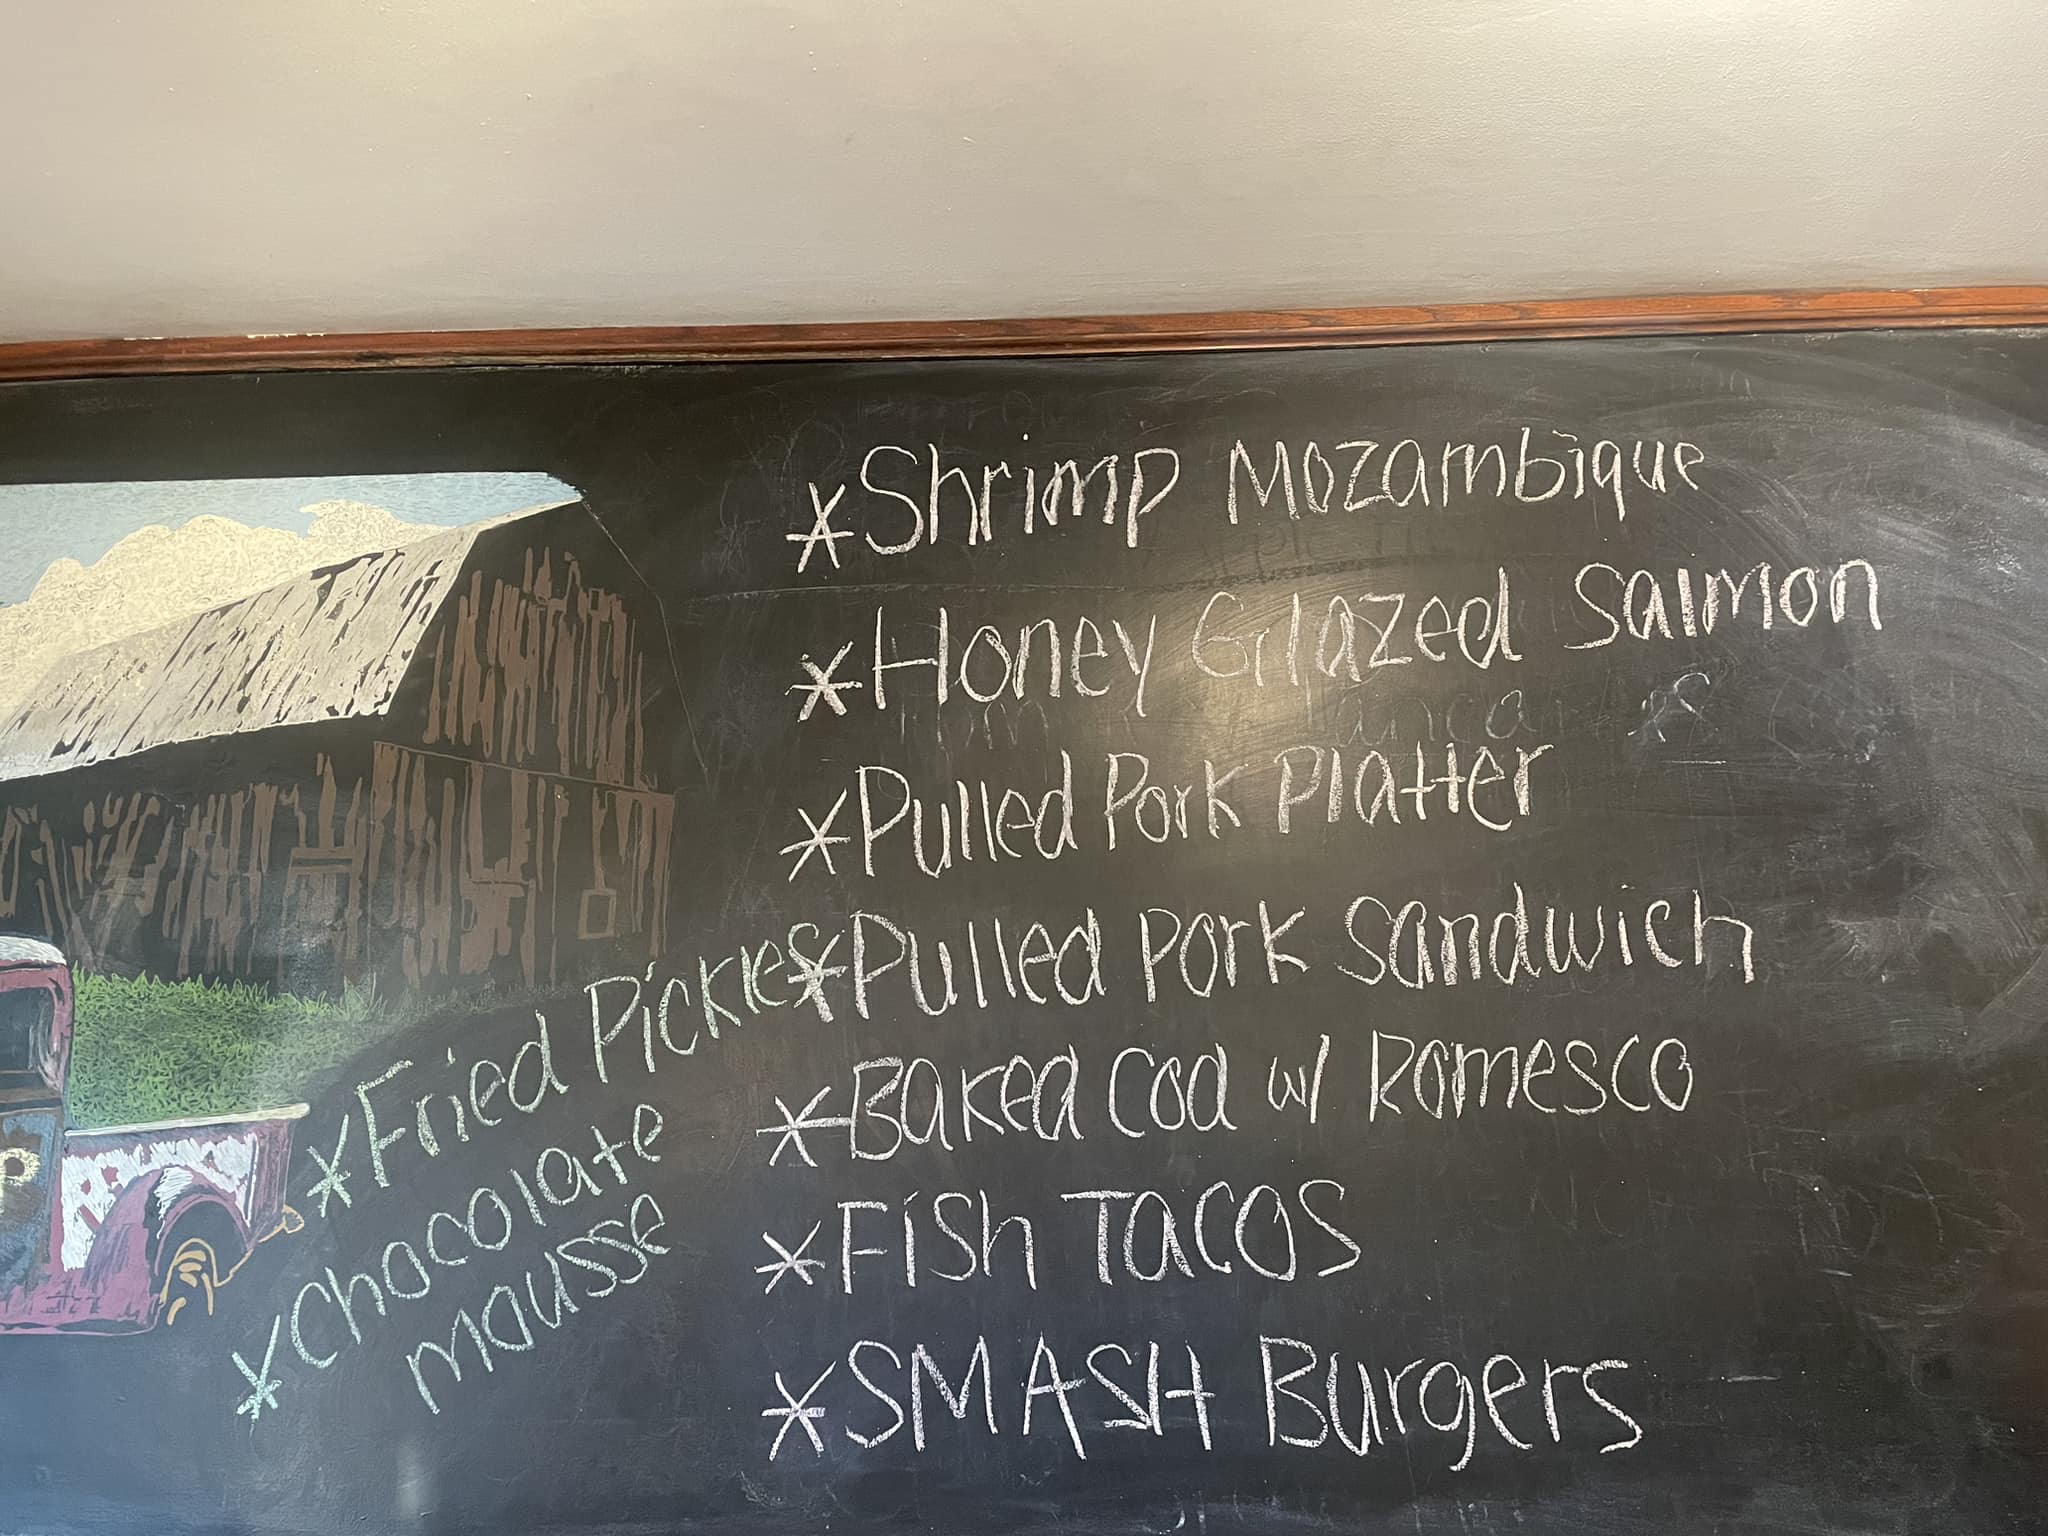 *Shrimp Mozambique
*Honey Glazed Salmon
*Pulled Pork Platter
*Pulled Pork Sandwich
*Baked Cod w/ Romesco
*Fish Tacos
*SMASH Burgers
*Fried Pickles
*Chocolate
mousse